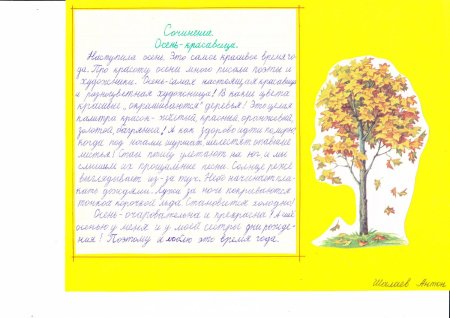 Сочинение
Осень-красавица.
Наступила осень. Это самое красивое время го
да. Про красоту осени много писали поэты и
художники. Осень-самая настоящая красавица
и разноцветная художница! В какие цвета
красивые „окрашиваются" деревья! Это целая
палитра красок - жёлтый, красный, оранжевый,
золотой, багряный! А как здорово идти по парку,
когда под ногами шуршат, шелестят опавшие
листья! Стаи птиц улетают на юг и мы
слышим их прощальные песни. Солнце реже
выглядывает из-за туч. Небо начинает пла-
кать дождями. Лужи за ночь покрываются
тонкой корочкой льда. Становится холодно!
Осень-очаровательна и прекрасна! А ещё
осенью у меня и у моей сестры дни рожде-
ния! Поэтому я люблю это время года.
Шалаев Антон